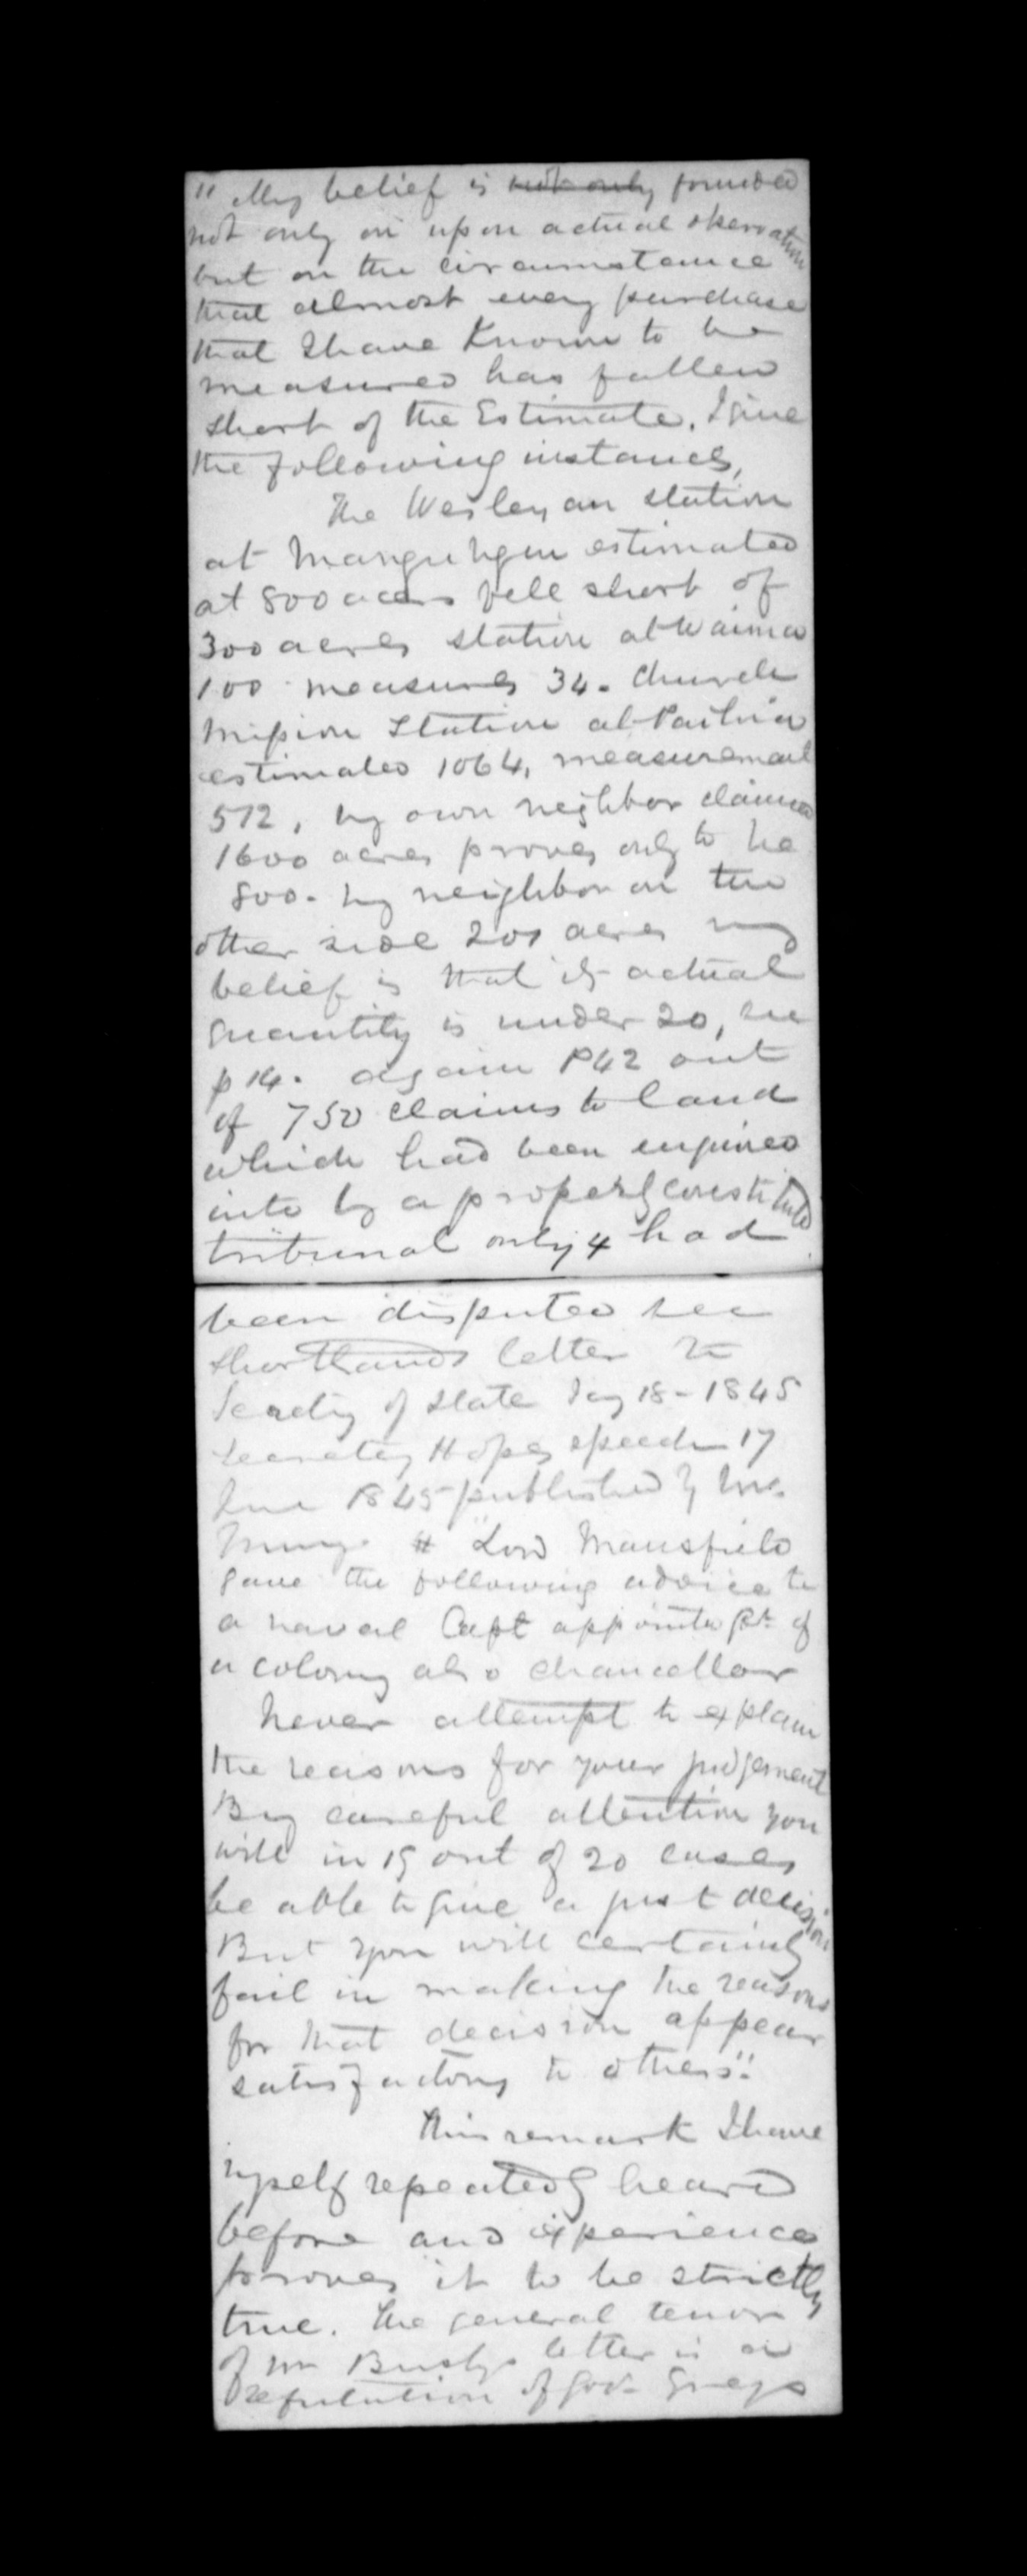 " My belief is not only founded
not only on upon actual observation
but on the circumstance
that almost every purchase
that I have Known to be
measured has fallen
short of the Estimate. I give
the following instances,
The Wesleyan station
at Mangungu estimated
at 800 acres fell short of
300 acres station at Waima
100 measures 34. Church
Mission Station at Paihia
estimated 1064, measurement
572, my own neighbor claimed
1600 acres proves only to be
800. my neighbor on the
other side 200 acres my
belief is that its actual
quantity is under 20, see
p 14. again P42 out
of 750 claims to land
which had been enquired
into by a properly constituted
tribunal only 4 had
been disputed see
Shortlands letter to
Secretry of State Jay 18 - 1845
Hopes speech 17
June 1845 published by
Murray # "Lord Mansfield
gave the following advice to
a naval Capt appointed Gr. of
a colony also chancellor
Never attempt to explain
the reasons for your judgement
By careful attention you
will in 19 out of 20 cases
be able to give a just decision
But you will certainly
fail in making the reasons
for that decision appear
satisfactory to others".
This remark I have
myself repeatedly heard
before and experience
proves it to be strictly
true. The general tenor
of Mr Busbys letter is a
refutation of Govr Greys